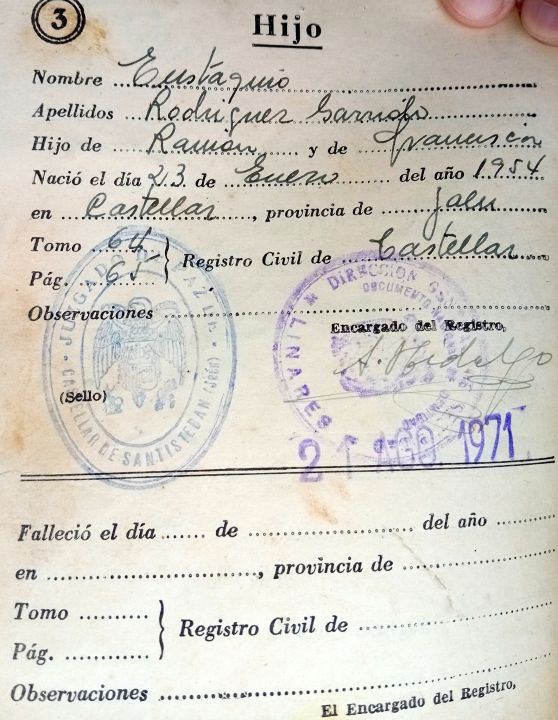 3
Hijo
Nombre Eustaquio
Apellidos Rodriguez Garrido
Hijo de Ramón y de Francisca
Nació el día 23 de Enero del año 1954
en Castellar, provincia de Jaén
Tomo 64
Pág. 65
Registro Civil de Castellar
Observaciones
Encargado del Registro,
A. Hidalgo
(Sello)
JUZGADO DE PAZ
CASTELLAR DE SANTISTEBAN (JAÉN)
DIRECCIÓN
DOCUMENTO
LINARES
21 AGO. 1971
Falleció el día ...... de .................... del año ..........
en .........................., provincia de ....................
Tomo ..........
Pág. ............
Registro Civil de ........................
Observaciones ........................................
El Encargado del Registro,